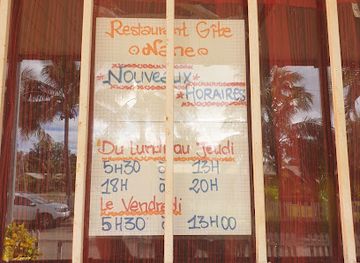 Restaurant Gîte
Nane
NOUVEAUX
HORAIRES
Du Lundi au jeudi
5H30 à 13H
18H à 20H
Le Vendredi
5H30 à 13H00